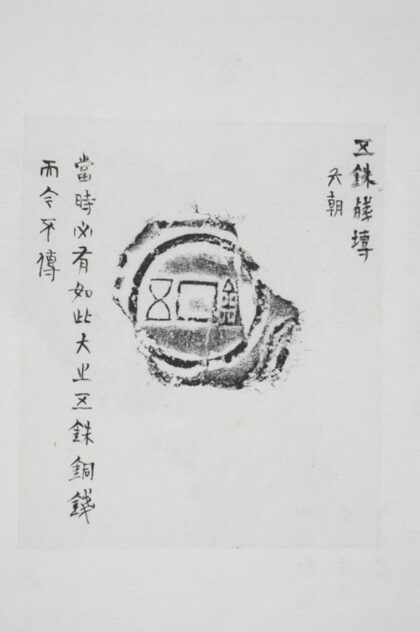 五銖殘塼
六朝
五金
當時必有如此大之五銖銅錢
而今不傳